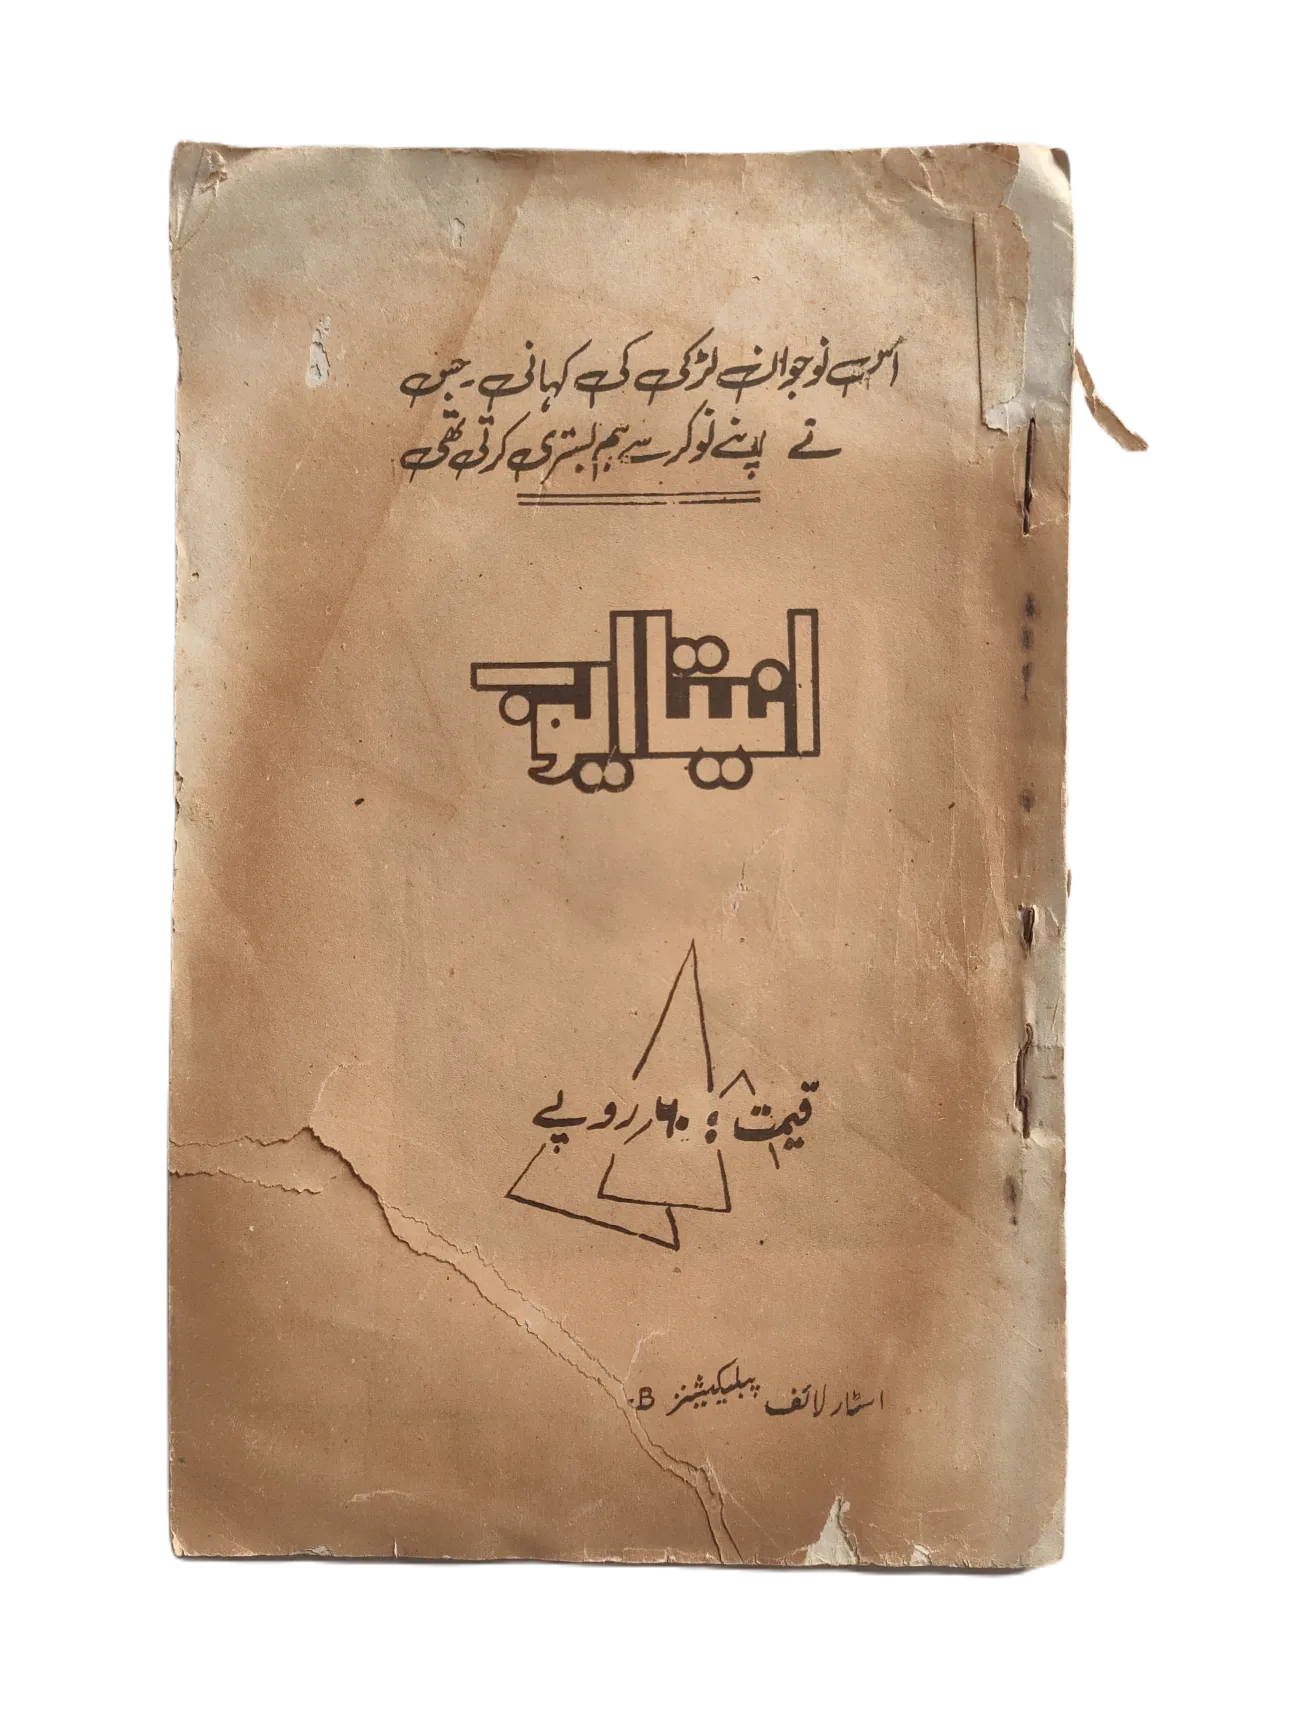 اس نوجوان لڑکی کی کہانی۔ جس
نے اپنے نوکر سے ہم بستری کرتی تھی
قیمت : ۶۰ روپے
اسٹار لائف پبلیکیشنز B.